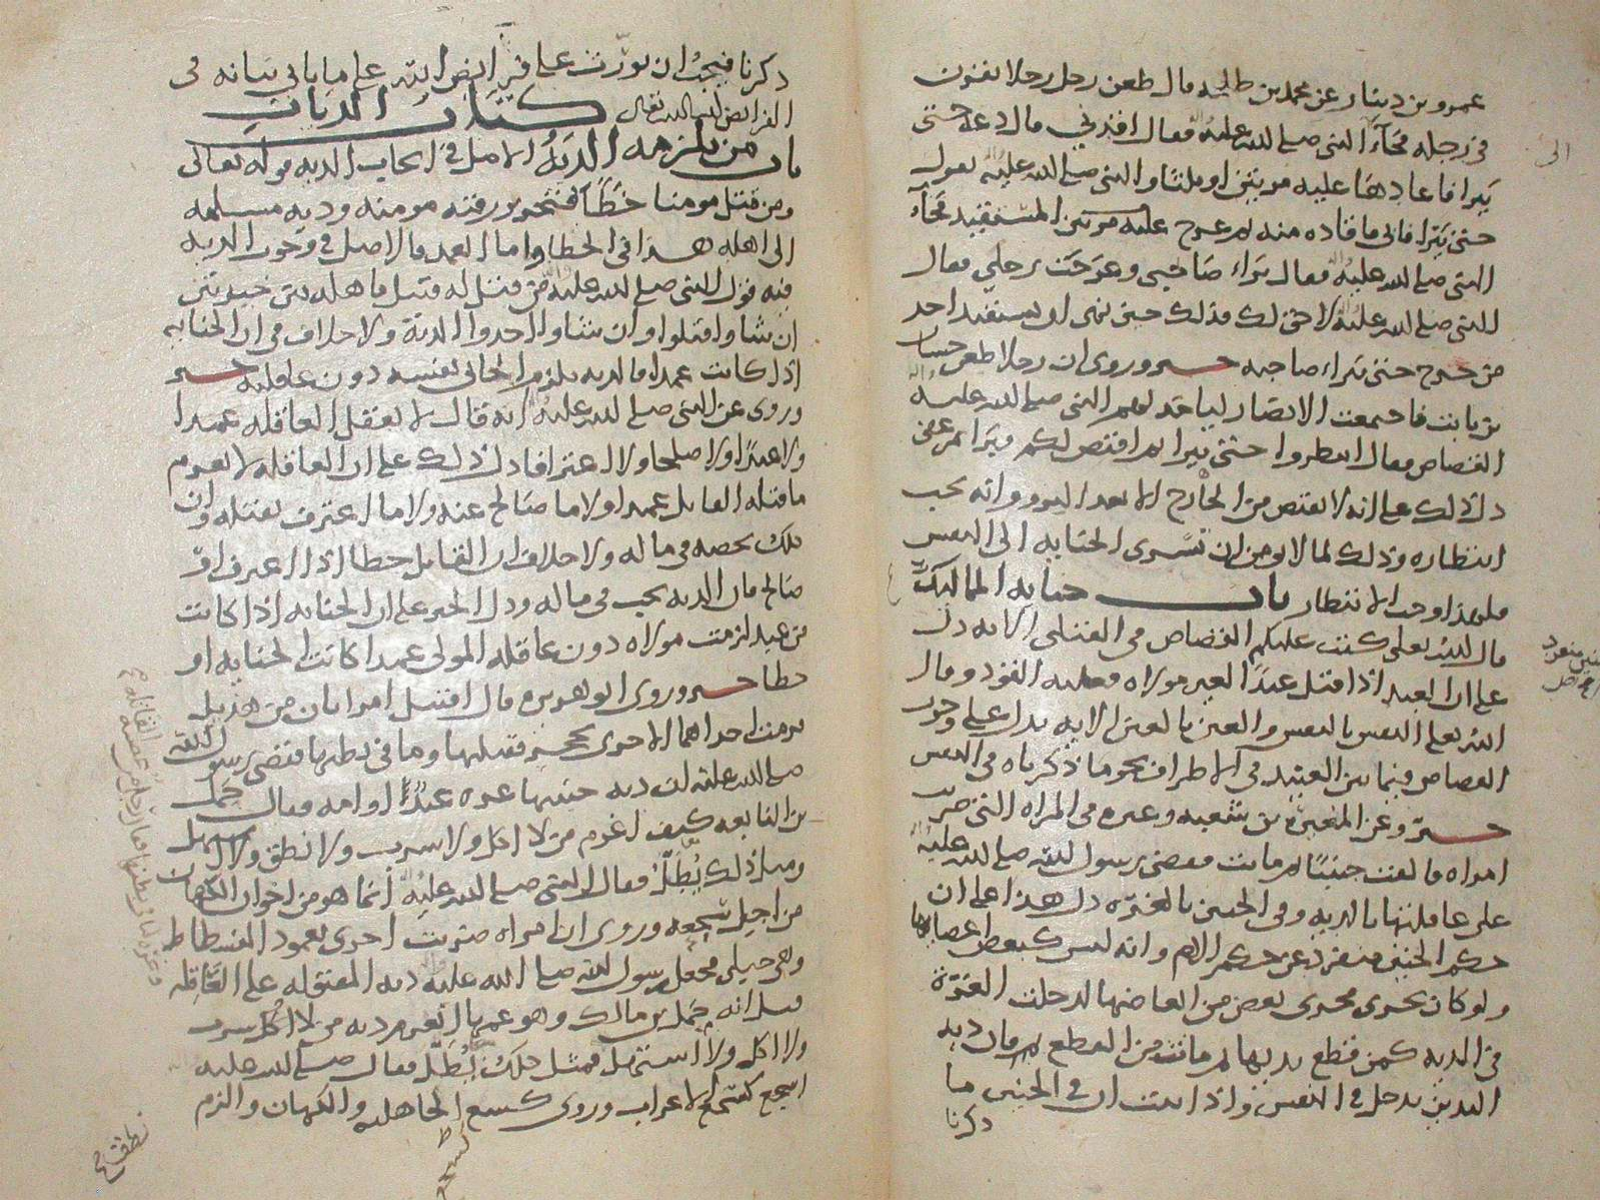 عمرو بن دينار عن محمد بن طلحه قال طعن رجل رجلا بقرن
في رجله فجاء النبي صلى الله عليه فقال اقدني قال دعه حتى
يبرا فاعادها عليه مرتين او ثلثا والنبي صلى الله عليه يقول
حتى يبرا فابى فاقاده منه ثم عرج عليه مرتين المستقيد فجاء
النبي صلى الله عليه فقال براء صاحبي وعرجت رجلي فقال
النبي صلى الله عليه لا حق لك فذلك حين نهى ان يستقيد احد
من جرح حتى يبراء صاحبه خبر وروي ان رجلا طعن حسان
بن ثابت فاجتمعت الانصار لياخذ لهم النبي صلى الله عليه
القصاص فقال انتظروا حتى يبرا ثم اقتص لكم فبرا ثم عفى
دل ذلك على انه لا يقتص من الجارح الا بعد البرو وانه يجب
انتظاره وذلك لما لا يومن ان تسرى الجنايه الى النفس
فلهذا وجب الانتظار باب جنايه المماليك
قال الله تعالى كتب عليكم القصاص في القتلى الايه دل
على ان العبد اذا قتل عبدا لغير مولاه فعليه القود وقال
الله تعالى النفس بالنفس والعين بالعين الايه يدل على وجوب
القصاص فيما بين العبيد في الاطراف نحو ما ذكرناه في النفس
خبر وعن المغيرة بن شعبه وغيره في المراه التي ضربت
امراه فالقت جنينا ثم ماتت فقضى رسول الله صلى الله عليه
على عاقلتها بالديه وفي الجنين بالغره دل هذا على ان
حكم الجنين منفرد عن حكم الام وانه ليس كبعض اعضايها
ولو كان يجرى مجرى بعض من اعاضها لدخلت الغرة
في الديه كمن قطع يديها ثم ماتت من القطع ثم فان دية
اليدين يدخل في النفس واذا ثبت ان في الجنين ما
ذكرنا
ذكرنا فيجب ان يورث على فرايض الله على ما ياتي بيانه في
الفرايض ان شا الله تعالى كتاب الديات
باب من يلزمه الدية الاصل في ايجاب الديه قوله تعالى
ومن قتل مومنا خطا فتحرير رقبه مومنه وديه مسلمه
الى اهله هذا في الخطا واما العمد فالاصل في وجوب الديه
فيه قول النبي صلى الله عليه من قتل له قتيل فاهله بين خيرتين
ان شاوا قتلوا وان شاوا اخذوا الدية ولا خلاف في ان الجنايه
اذا كانت عمدا فالديه يلزم الجاني نفسه دون عاقلته خبر
وروي عن النبي صلى الله عليه انه قال لا تعقل العاقله عمدا
ولا عبدا ولا صلحا ولا اعترافا دل ذلك على ان العاقله لا تغرم
ما قتله القاتل عمدا ولا ما صالح عنه ولا ما اعترف بقتله وان
ذلك يخصه في ماله ولا خلاف ان القاتل خطا اذا اعترف او
صالح فان الديه يجب في ماله ودل الخبر على ان الجنايه اذا كانت
من عبد لزمت مولاه دون عاقله المولى عمدا كانت الجنايه او
خطا خبر وروى ابو هريره قال اقتتل امراتان من هذيل
فرمت احداهما الاخرى بحجر فقتلها وما في بطنها فقضى رسول الله
صلى الله عليه ان ديه جنينها غره عبد او امه فقال حمل
بن النابغه كيف اغرم من لا اكل ولا شرب ولا نطق ولا استهل
ومثل ذلك يطل فقال النبي صلى الله عليه انما هو من اخوان الكهان
من اجل سجعه وروي ان امراه ضربت اخرى بعمود الفسطاط
وهي حبلى فجعل رسول الله صلى الله عليه ديه المقتوله على العاقله
فسل انه حمل بن مالك وهو عمها انغرم ديه من لا اكل ولا شرب
ولا اكل ولا استهل فمثل ذلك يطل فقال صلى الله عليه
اسجع كسجع الاعراب وروي كسجع الجاهليه والكهان والزم